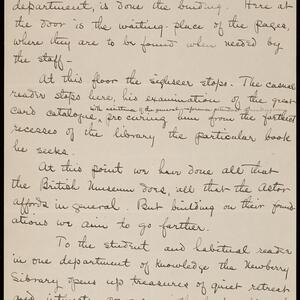 department, is done the binding. Here at
the door is the waiting place of the pages,
where they are to be found when needed by
the staff—
At this floor the sightseer stops. The casual
reader stops here, his examination of the great
with assistance of the general
card catalogue, procuring him from the farthest
recesses of the library the particular book
he seeks.
At this point we have done all that
the British Museum does, all that the Astor
affords in general. But building on their found-
ations we aim to go farther.
To the student and habitual reader
in one department of knowledge the Newberry
Library opens up treasures of quiet retreat
and